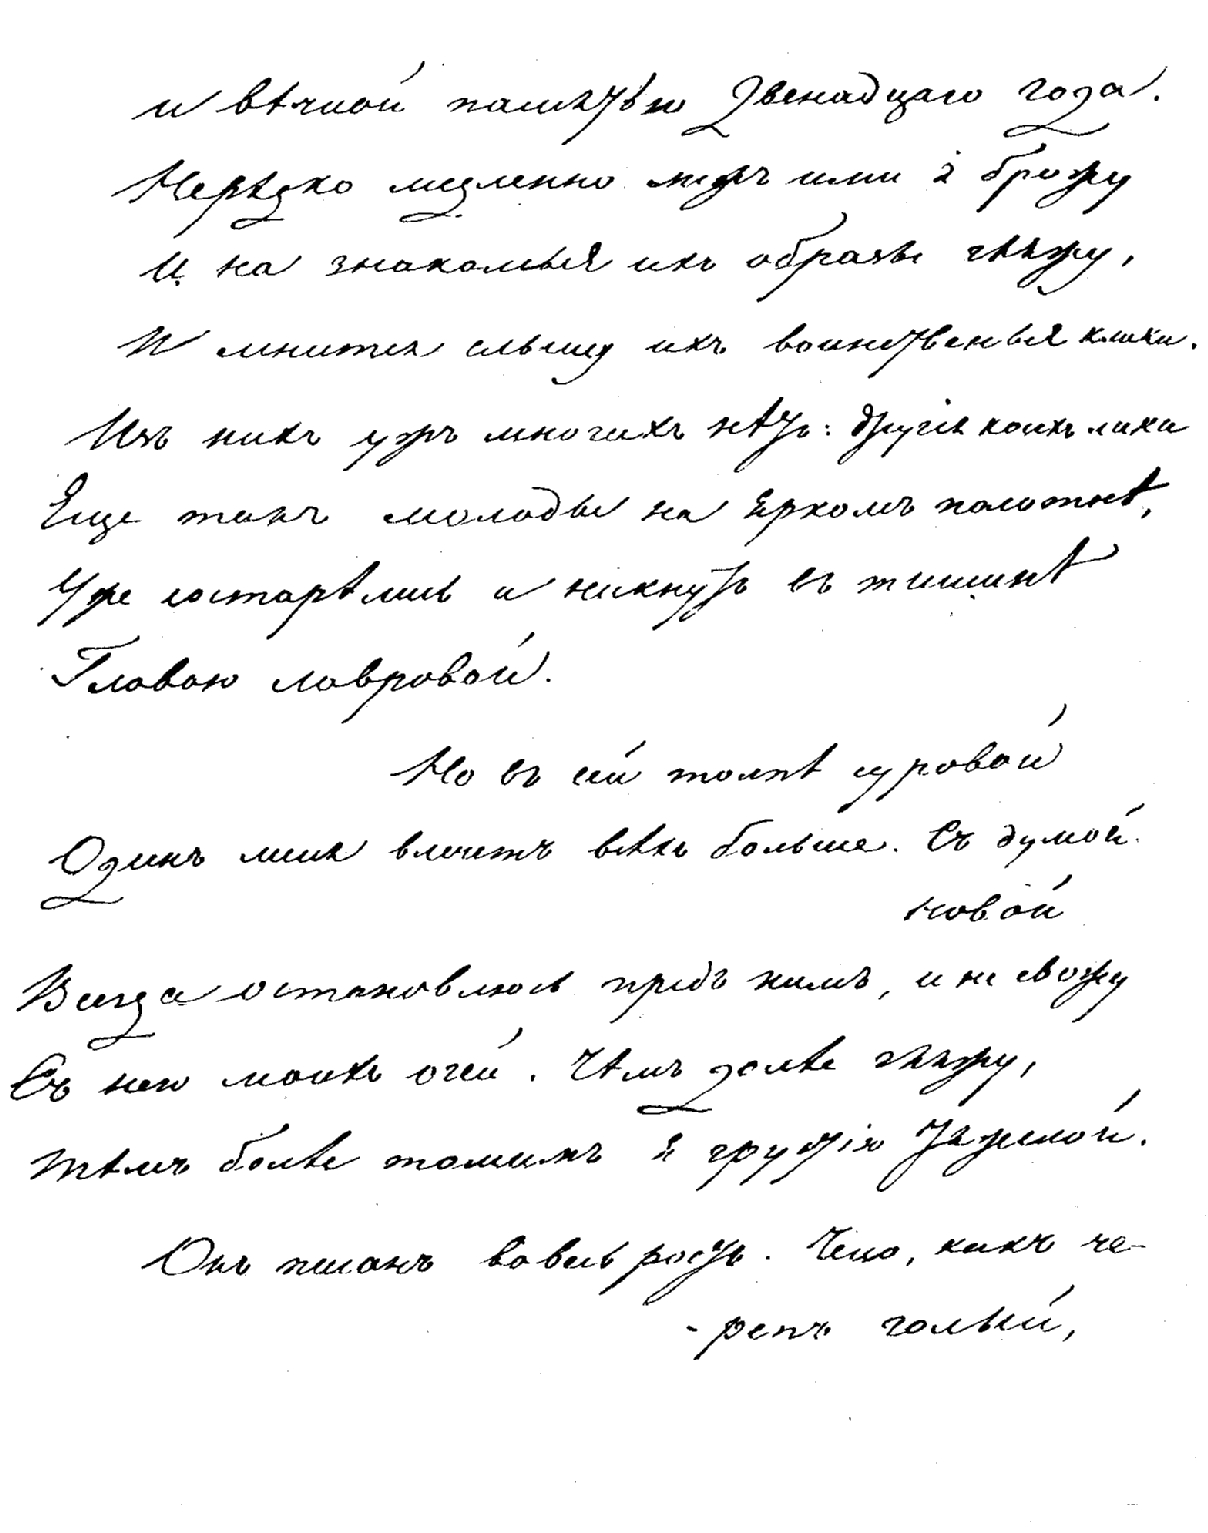 и вѣчной памятью двенадцаго года.
Нерѣдко медленно межъ ими я брожу
И на знакомыя ихъ образы гляжу,
И мнится слышу ихъ воинственыя клики.
Изъ нихъ ужъ многихъ нѣтъ: другія коихъ лики
Еще такъ молоды на яркомъ полотнѣ,
Уже состарѣлись и никнутъ въ тишинѣ
Главою лавровой.
Но въ сей толпѣ суровой
Одинъ меня влечетъ всѣхъ больше. Съ думой
новой
Всегда остановлюсь предъ нимъ, и не свожу
Съ него моихъ очей. Чѣмъ долѣе гляжу,
Тѣмъ болѣе томимъ я грустію тяжелой.
Онъ писанъ во весь ростъ. Чело, какъ че-
-репъ голый,